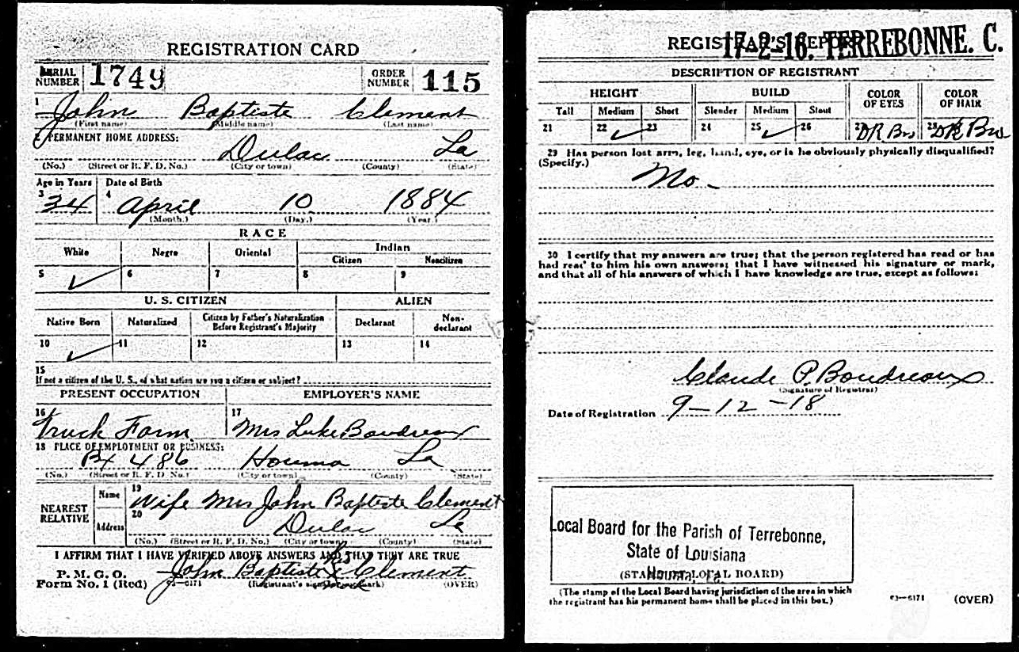 REGISTRATION CARD
SERIAL NUMBER 1749 ORDER NUMBER 115
1 John Baptiste Clement
(First name) (Middle name) (Last name)
2 PERMANENT HOME ADDRESS:
Dulac La
(No.) (Street or R. F. D. No.) (City or town) (County) (State)
Age in Years Date of Birth
3 34 4 April 10 1884
(Month.) (Day.) (Year.)
RACE
White Negro Oriental Indian
Citizen Noncitizen
5 ✓ 6 7 8 9
U. S. CITIZEN ALIEN
Native Born Naturalized Citizen by Father's Naturalization Before Registrant's Majority Declarant Non-declarant
10 ✓ 11 12 13 14
15
If not a citizen of the U. S., of what nation are you a citizen or subject?
PRESENT OCCUPATION EMPLOYER'S NAME
16 Truck Farm 17 Mrs Luke Boudreaux
18 PLACE OF EMPLOYMENT OR BUSINESS:
Bx 486 Houma La
(No.) (Street or R. F. D. No.) (City or town) (County) (State)
NEAREST RELATIVE Name 19 Wife Mrs John Baptiste Clement
Address 20 Dulac La
(No.) (Street or R. F. D. No.) (City or town) (County) (State)
I AFFIRM THAT I HAVE VERIFIED ABOVE ANSWERS AND THAT THEY ARE TRUE
P. M. G. O.
Form No. 1 (Red) John Baptiste Clement
(Registrant's signature or mark) (OVER)
REGISTRAR'S REPORT
17-2-16. TERREBONNE. C.
DESCRIPTION OF REGISTRANT
HEIGHT BUILD COLOR OF EYES COLOR OF HAIR
Tall Medium Short Slender Medium Stout
21 22 ✓ 23 24 25 ✓ 26 27 DK Br 28 DK Bro
29 Has person lost arm, leg, hand, eye, or is he obviously physically disqualified?
(Specify.) No -
30 I certify that my answers are true; that the person registered has read or has
had read to him his own answers; that I have witnessed his signature or mark,
and that all of his answers of which I have knowledge are true, except as follows:
Claude P. Boudreaux
(Signature of Registrar)
Date of Registration 9-12-18
Local Board for the Parish of Terrebonne,
State of Louisiana
Houma, La.
(STAMP OF LOCAL BOARD)
(The stamp of the Local Board having jurisdiction of the area in which
the registrant has his permanent home shall be placed in this box.)
03-6171 (OVER)